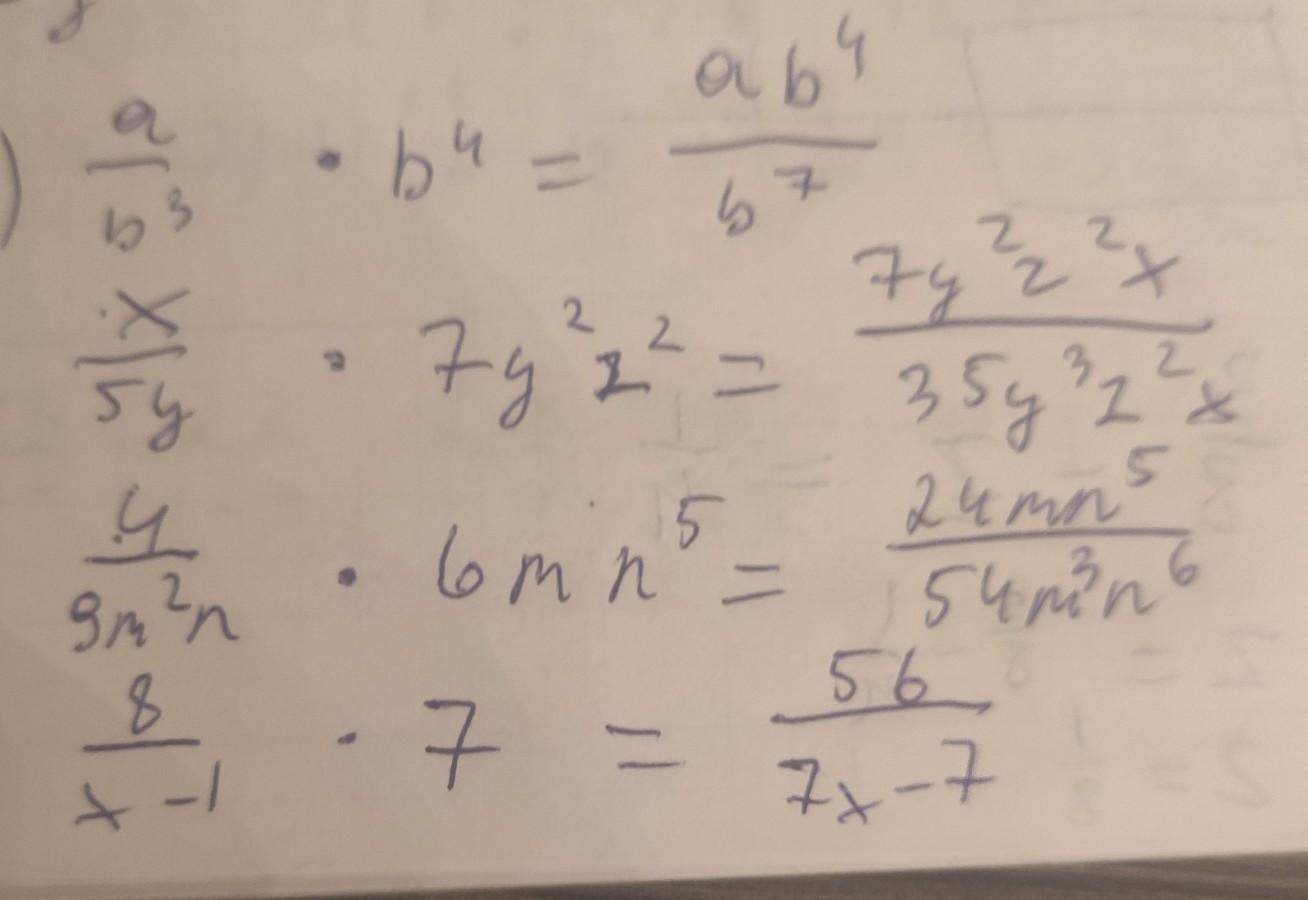 ) a/b³ · b⁴ = ab⁴/b⁷
x/5y · 7y²z² = 7y²z²x/35y³z²x
4/9m²n · 6mn⁵ = 24mn⁵/54m³n⁶
8/x-1 · 7 = 56/7x-7